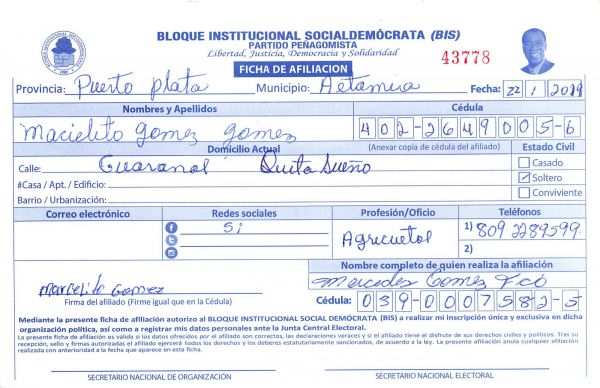 BLOQUE INSTITUCIONAL SOCIALDEMÓCRATA (BIS)
PARTIDO PEÑAGOMISTA
Libertad, Justicia, Democracia y Solidaridad
43778
FICHA DE AFILIACION
Provincia: Puerto plata Municipio: Altamira Fecha: 22 1 2019
Nombres y Apellidos Cédula
Macielito gomez gomez 402-2649005-6
Domicilio Actual (Anexar copia de cédula del afiliado) Estado Civil
Calle: Guaranal Quita Sueño Casado
#Casa / Apt. / Edificio: Soltero
Barrio / Urbanización: Conviviente
Correo electrónico Redes sociales Profesión/Oficio Teléfonos
Si Agricultol 1) 809 2289599
2)
Nombre completo de quien realiza la afiliación
Marcelito Gomez Mercedes Gomez Fco
Firma del afiliado (Firme igual que en la Cédula) Cédula: 039-0007582-5
Mediante la presente ficha de afiliación autorizo al BLOQUE INSTITUCIONAL SOCIAL DEMÓCRATA (BIS) a realizar mi inscripción única y exclusiva en dicha
organización política, así como a registrar mis datos personales ante la Junta Central Electoral.
La presente ficha de afiliación es válida si los datos ofrecidos por el afiliado son correctos, las declaraciones veraces y si el afiliado tiene el disfrute de sus derechos civiles y políticos. Tras su
recepción, sello y firmas autorizadas el afiliado ejercerá todos los derechos y los deberes estatutariamente sancionados, de acuerdo a la ley. La presente afiliación anula cualquier afiliación
realizada con anterioridad a la fecha que aparece en esta ficha.
SECRETARIO NACIONAL DE ORGANIZACIÓN SECRETARIO NACIONAL ELECTORAL